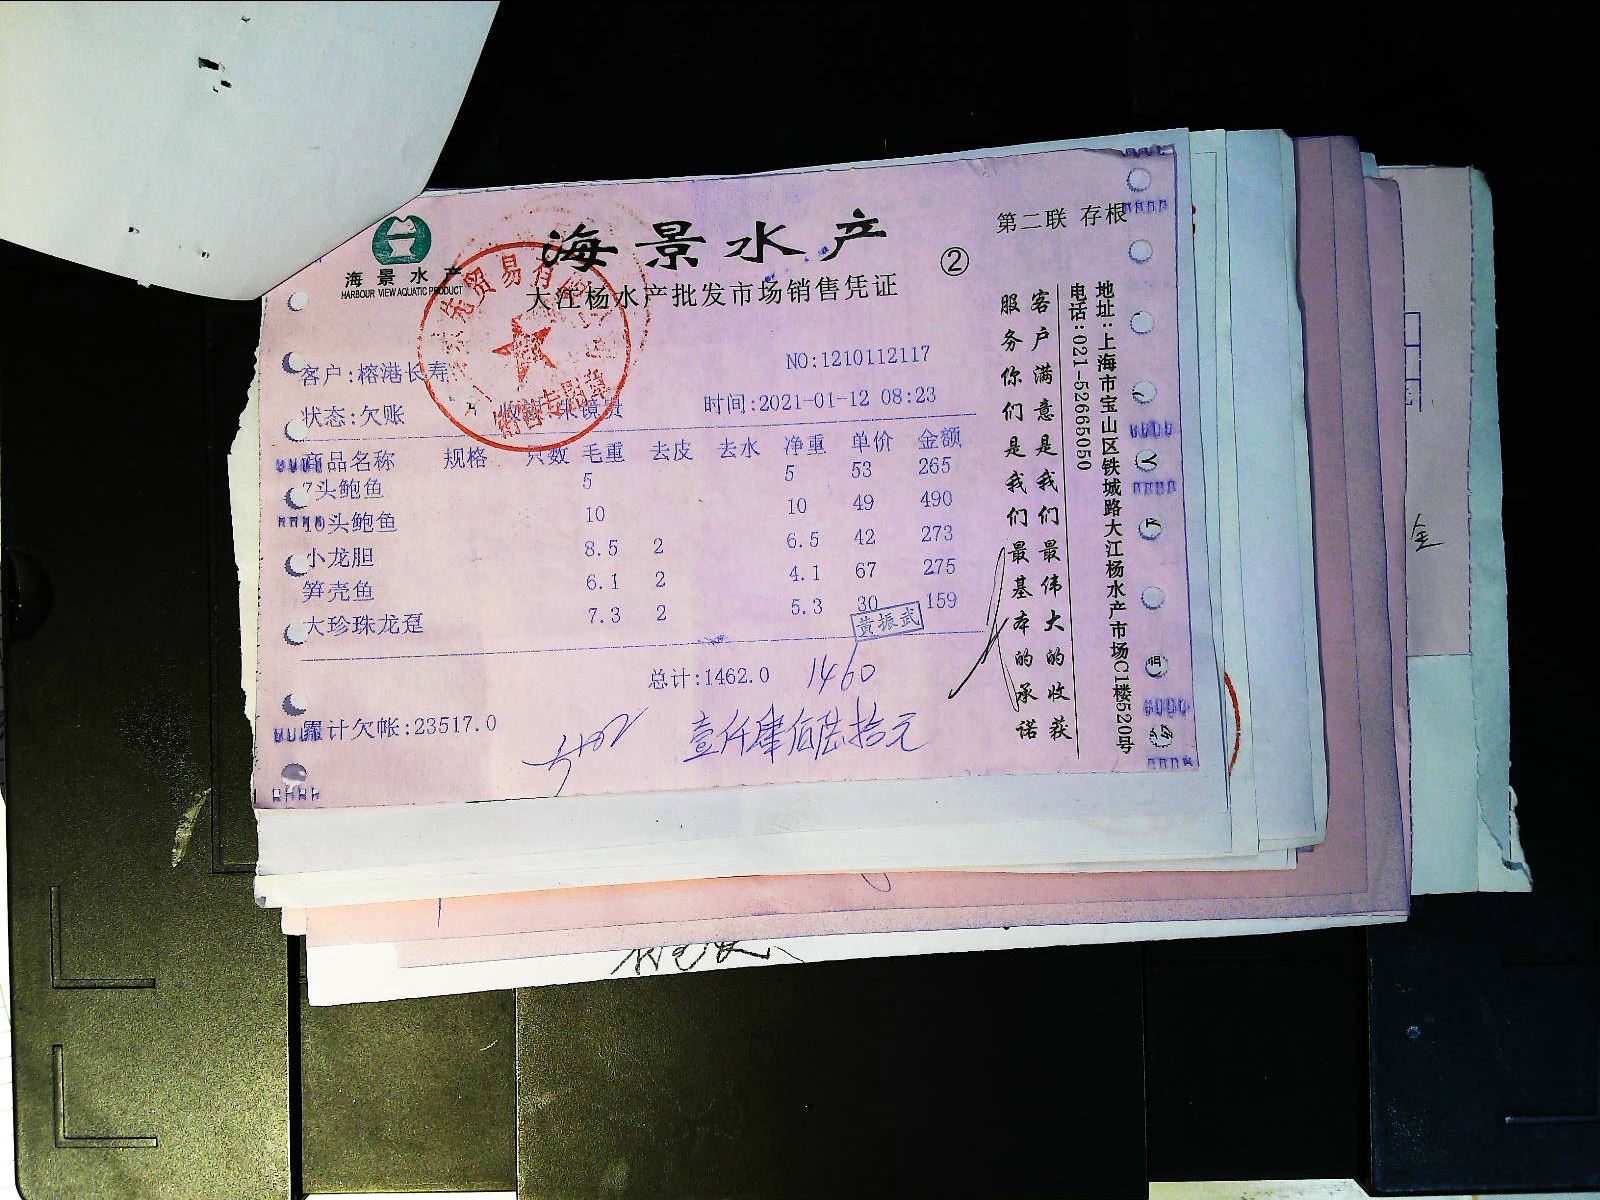 海景水产
HARBOUR VIEW AQUATIC PRODUCT
海景水产
大江杨水产批发市场销售凭证
第二联 存根
②
客户:榕港长寿
NO:1210112117
状态:欠账
时间:2021-01-12 08:23
贸易有
销售专用章
商品名称 规格 只数 毛重 去皮 去水 净重 单价 金额
7头鲍鱼 5 5 53 265
10头鲍鱼 10 10 49 490
小龙胆 8.5 2 6.5 42 273
笋壳鱼 6.1 2 4.1 67 275
大珍珠龙趸 7.3 2 5.3 30 159
黄振武
总计:1462.0 1460
累计欠帐:23517.0
壹仟肆佰陆拾元
客户满意是我们最伟大的收获
服务你们是我们最基本的承诺
地址:上海市宝山区铁城路大江杨水产市场C1楼520号
电话:021-52665050
金